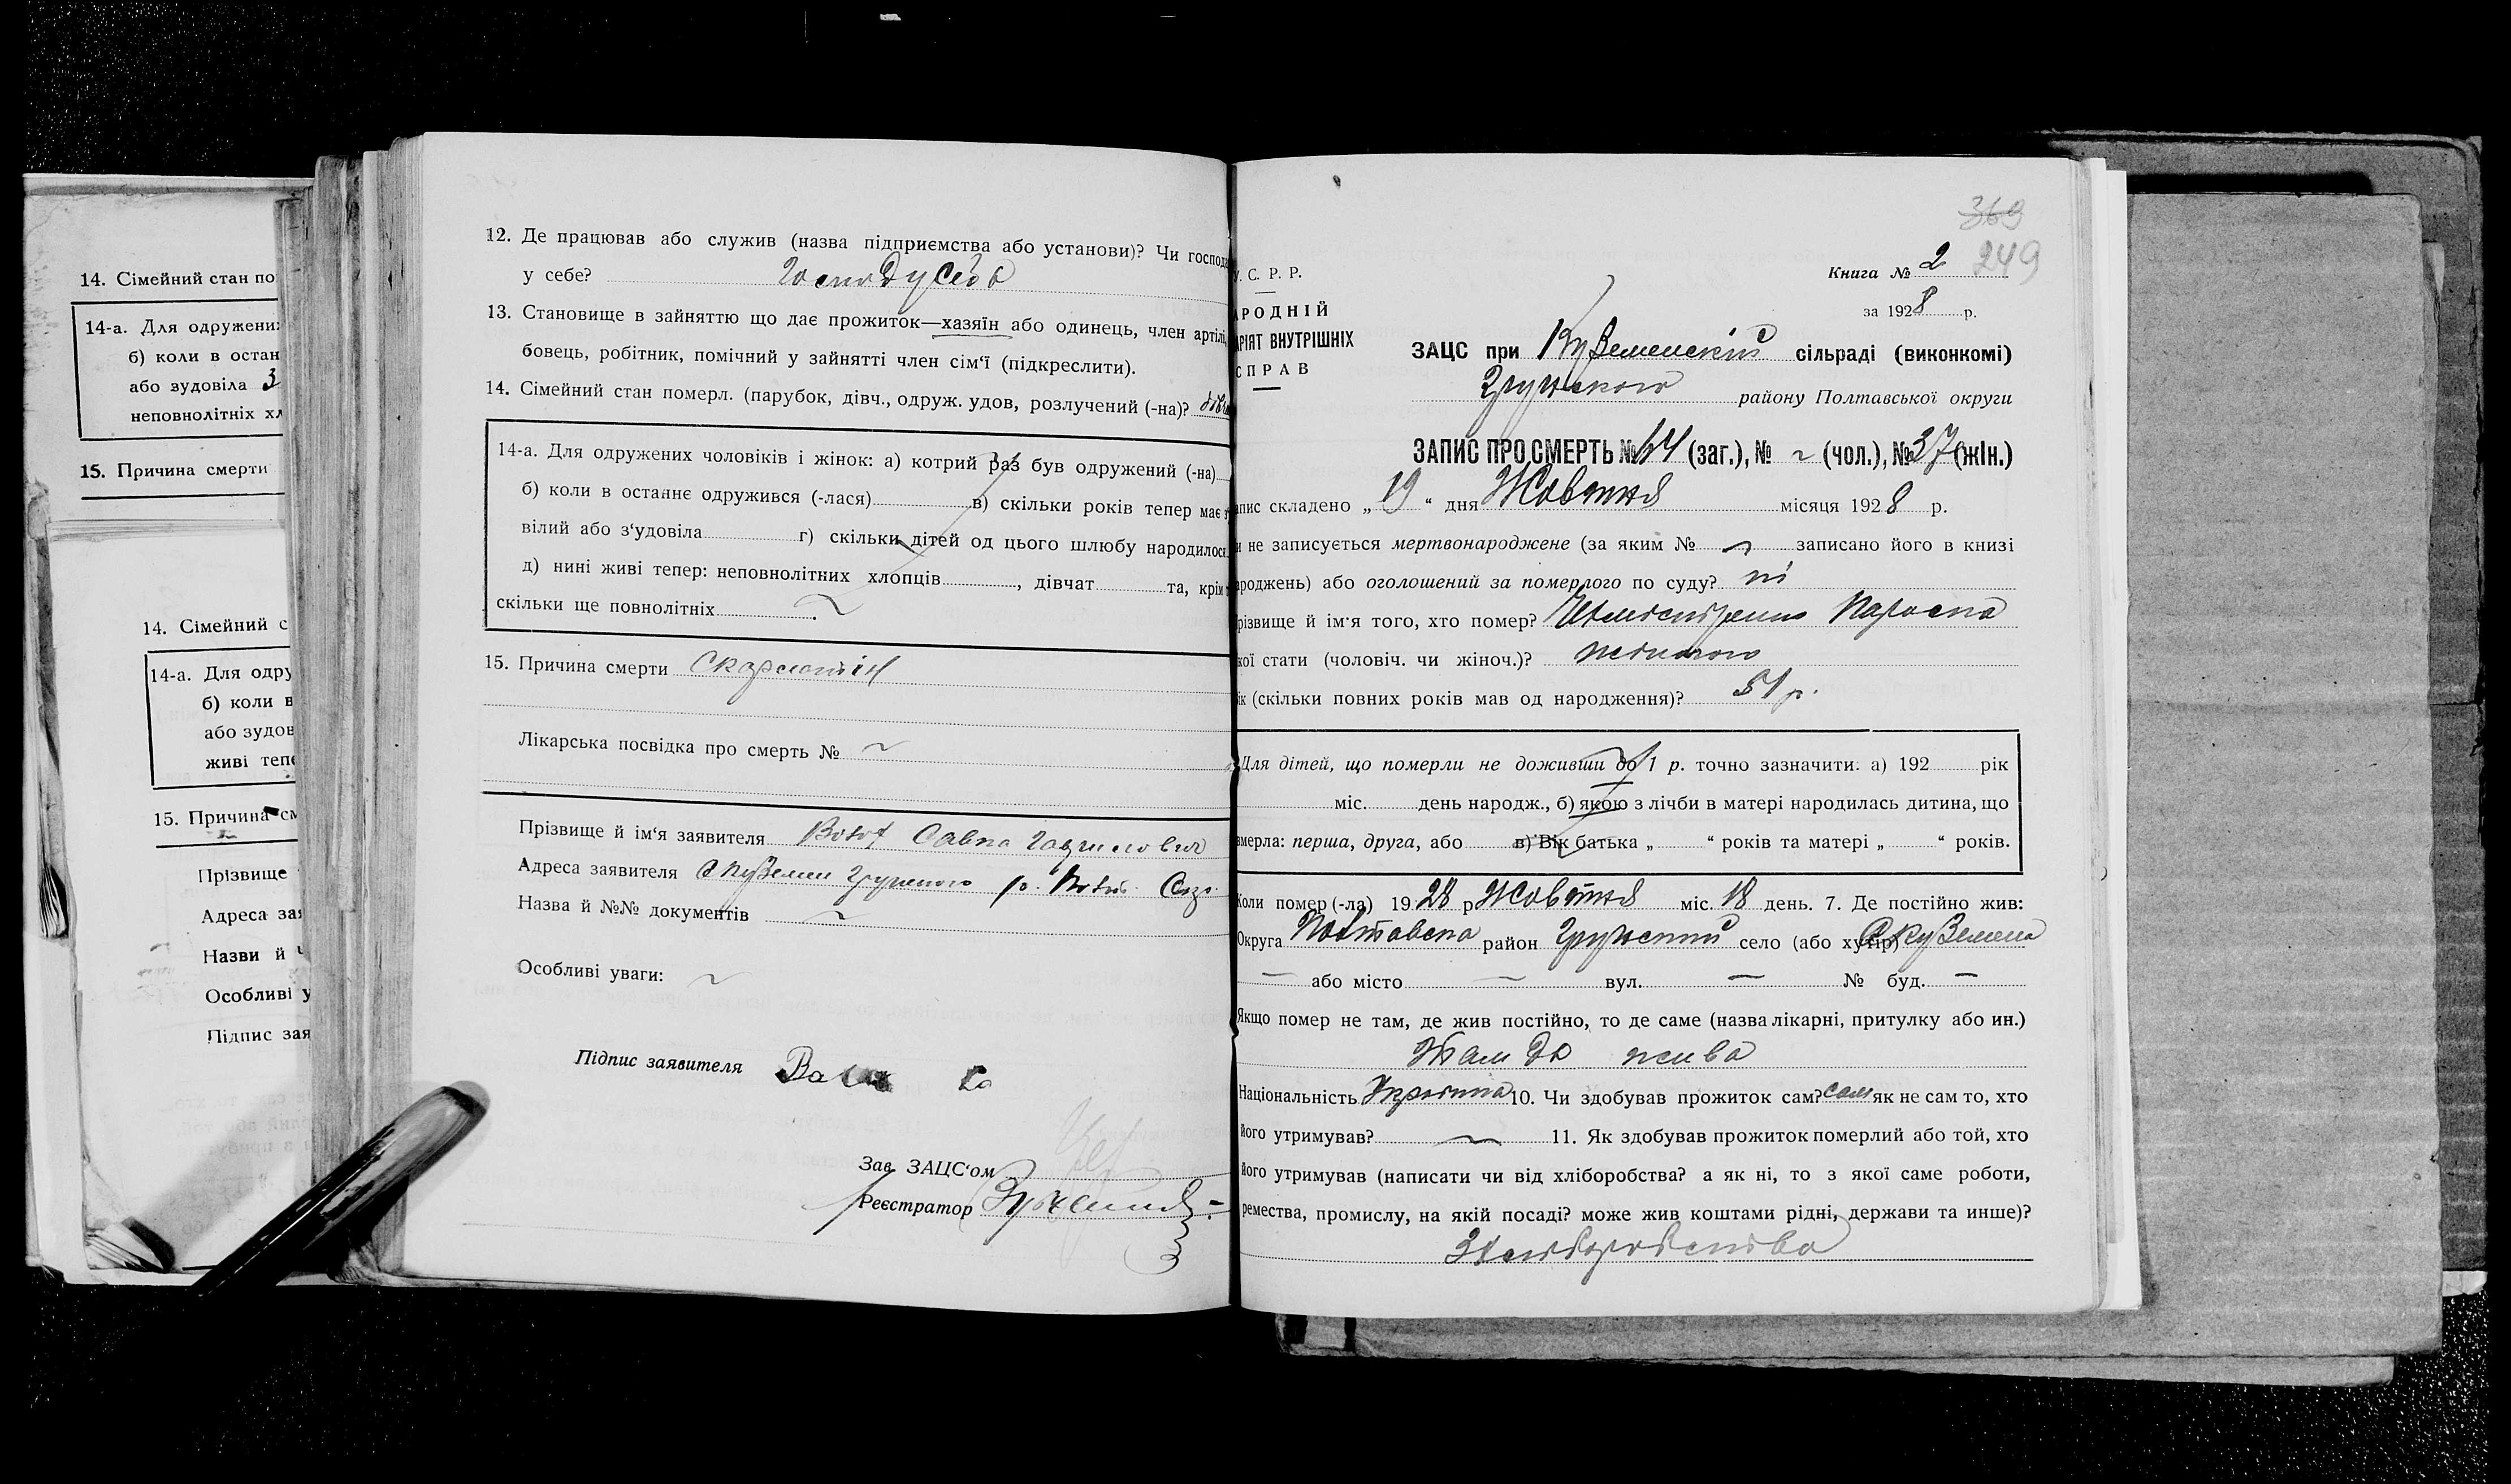 14. Сімейний стан по
14-а. Для одружени
б) коли в остан
або зудовіла 3
неповнолітніх хл
15. Причина смерти
14. Сімейний с
14-а. Для одру
б) коли в
або зудов
живі тепе
15. Причина см
Прізвище
Адреса зая
Назви й
Особливі у
Підпис зая
12. Де працював або служив (назва підприємства або установи)? Чи господа
у себе? Господ у себе
13. Становище в зайняттю що дає прожиток—хазяїн або одинець, член артілі,
бовець, робітник, помічний у зайнятті член сім'ї (підкреслити).
14. Сімейний стан померл. (парубок, дівч., одруж. удов, розлучений (-на)?
14-а. Для одружених чоловіків і жінок: а) котрий раз був одружений (-на)
б) коли в останнє одружився (-лася) в) скільки років тепер має з
вілий або з'удовіла г) скільки дітей од цього шлюбу народилося
д) нині живі тепер: неповнолітніх хлопців , дівчат та, крім т
скільки ще повнолітніх ~
15. Причина смерти Скарлотін
Лікарська посвідка про смерть № ~
Прізвище й ім'я заявителя Савка Гаврилович
Адреса заявителя с Куземен Грунского р.
Назва й №№ документів ~
Особливі уваги: ~
Підпис заявителя
Зав. ЗАЦС'ом
Реєстратор
369
Книга № 2 249
за 1928 р.
У. С. Р. Р.
АРОДНІЙ
АРІЯТ ВНУТРІШНІХ
СПРАВ
ЗАЦС при Куземенскій сільраді (виконкомі)
Грунского району Полтавської округи
ЗАПИС ПРО СМЕРТЬ № 64 (заг.), № ~ (чол.), № 37 (жін.)
апис складено „ 19 “ дня Жовтня місяця 1928 р.
и не записується мертвонароджене (за яким № ~ записано його в книзі
ароджень) або оголошений за померлого по суду? ні
різвище й ім'я того, хто помер? Параска
кої стати (чоловіч. чи жіноч.)? жіночого
ік (скільки повних років мав од народження)? 51 р.
Для дітей, що померли не доживши до 1 р. точно зазначити: а) 192 рік
міс. день народж., б) якою з лічби в матері народилась дитина, що
вмерла: перша, друга, або в) Вік батька „ “ років та матері „ “ років.
Коли помер (-ла) 19 28 р Жовтня міс. 18 день. 7. Де постійно жив:
Округа Повтавска район Грунский село (або хутір) с Куземена
— або місто — вул. — № буд. —
Якщо помер не там, де жив постійно, то де саме (назва лікарні, притулку або ин.)
Там де жива
Національність Україніка 10. Чи здобував прожиток сам? сам як не сам то, хто
його утримував? ~ 11. Як здобував прожиток померлий або той, хто
його утримував (написати чи від хліборобства? а як ні, то з якої саме роботи,
ремества, промислу, на якій посаді? може жив коштами рідні, держави та инше)?
З хліборобства